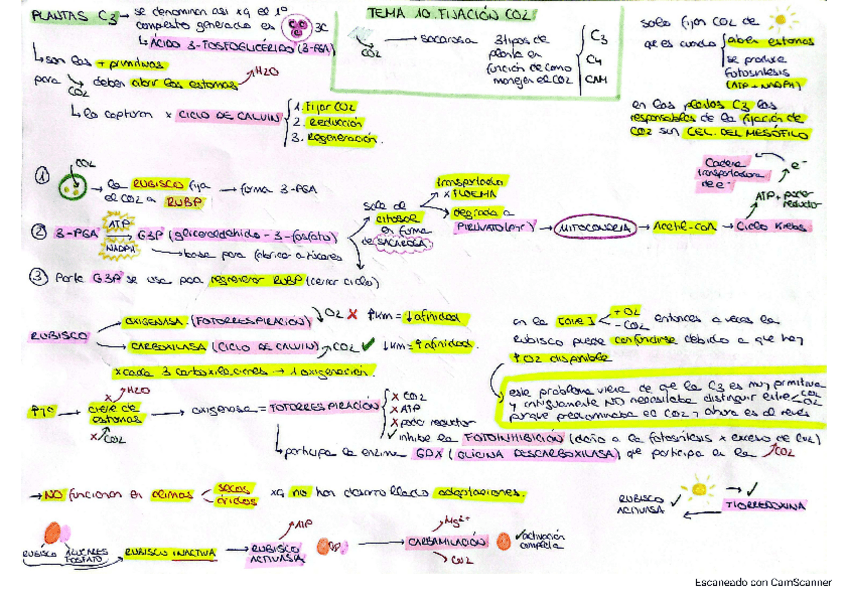 TEMA 10. FIJACIÓN CO2
PLANTAS C3 → se denominan así xq el 1º
compuesto generado es 3C
↳ ÁCIDO 3-FOSFOGLICÉRIDO (3-PGA)
↳ son las + primitivas
para CO2 ↳ deben abrir los estomas → H2O
↳ lo capturan x CICLO DE CALVIN
1. Fijar CO2
2. Reducción
3. Regeneración.
CO2 → sacarosa
3 tipos de
planta en
función de como
manejen el CO2
C3
C4
CAM
solo fijan CO2 de
que es cuando
abren estomas
se produce
fotosíntesis
(ATP + NADPH)
en las plantas C3 las
responsables de la fijación de
CO2 son CEL. DEL MESÓFILO
① CO2 → la RUBISCO fija
el CO2 a RUBP
→ forma 3-PGA
② 3-PGA ATP NADPH → G3P (gliceraldehído-3-fosfato)
↳ base para fabricar azúcares
sale de
citosol
en forma
de SACAROSA
transportada
x FLOEMA
degrada a
PIRUVATO (pyr) → MITOCONDRIA → Acetil-CoA → Ciclo Krebs
ATP + poder
reductor
e-
Cadena
transportadora
de e-
③ Parte G3P se usa para regenerar RUBP (cerrar ciclo)
RUBISCO
OXIGENASA (FOTORRESPIRACIÓN) ↓O2 ✗ ↑KM = ↓afinidad
CARBOXILASA (CICLO DE CALVIN) ↗CO2 ✓ ↓KM = ↑afinidad.
x cada 3 carboxilaciones → 1 oxigenación.
+O2
-CO2
entonces a veces la
RUBISCO puede confundirse debido a que hay
↑O2 disponible
este problema viene de que la C3 es muy primitiva
y antiguamente NO necesitaba distinguir entre CO2 O2
porque predominaba el CO2 y ahora es al revés
cierre de
estomas
✗ H2O
✗ CO2
→ oxigenasa = FOTORRESPIRACIÓN
✗ CO2
✗ ATP
✗ poder reductor
✓ inhibe la FOTOINHIBICIÓN (daño a la fotosíntesis x exceso de CO2)
↳ participa la enzima GDX (GLICINA DESCARBOXILASA) que participa en la ↗CO2
→ NO funcionan en climas
secos
áridos
xq no han desarrollado adaptaciones.
RUBISCO
ACTIVASA ✓
✓
TIORREDOXINA
RUBISCO AZÚCARES
FOSFATO
RUBISCO INACTIVA → RUBISCO
ACTIVASA
ATP
→ CARBAMILACIÓN
Mg2+
CO2
✓activación
completa
Escaneado con CamScanner